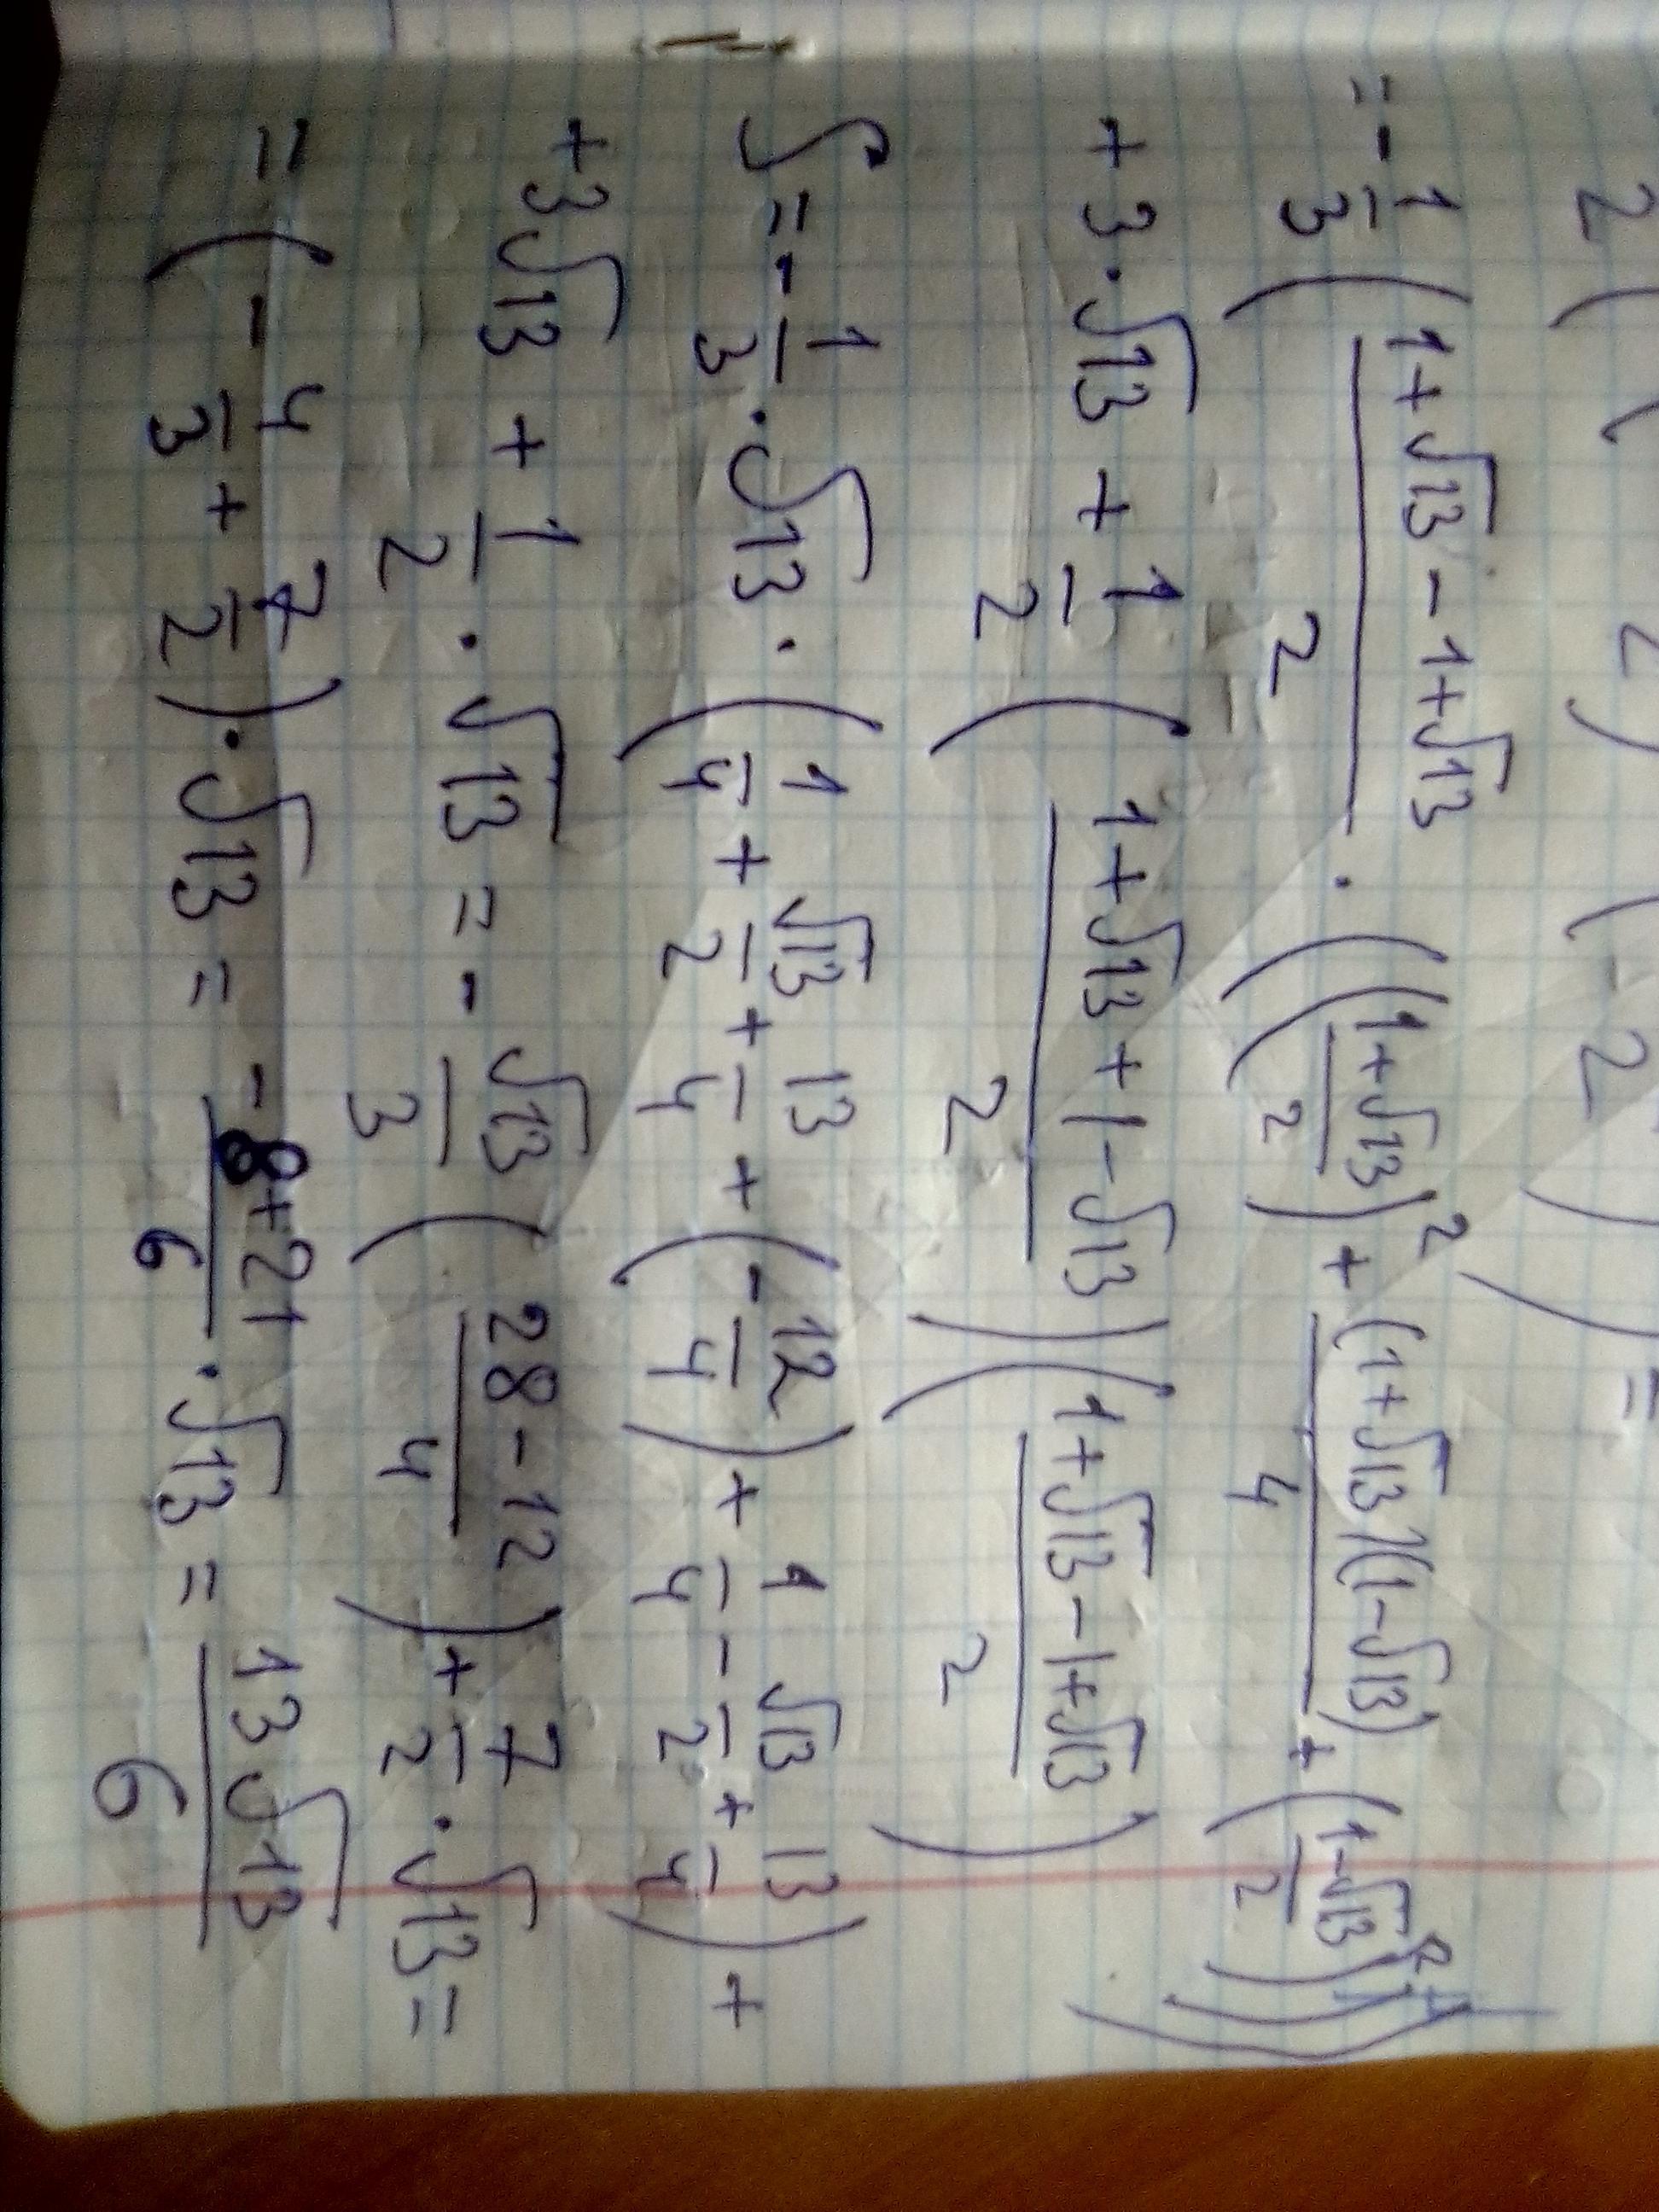 2 ( ( 2 ) ( - 2 ) =
= - 1/3 ( (1+√13 - 1+√13)/2 · ( ((1+√13)/2)² + ((1+√13)(1-√13))/4 + ((1-√13)/2)² ) ) +
+ 3 · √13 + 1/2 ( (1+√13 + 1 - √13)/2 ) ( (1+√13 - 1+√13)/2 )
S = - 1/3 · √13 · ( 1/4 + √13/2 + 13/4 + ( - 12/4 ) + 1/4 - √13/2 + 13/4 ) +
+ 3√13 + 1/2 · √13 = - √13/3 ( (28 - 12)/4 ) + 7/2 · √13 =
= ( - 4/3 + 7/2 ) · √13 = (-8+21)/6 · √13 = 13√13/6